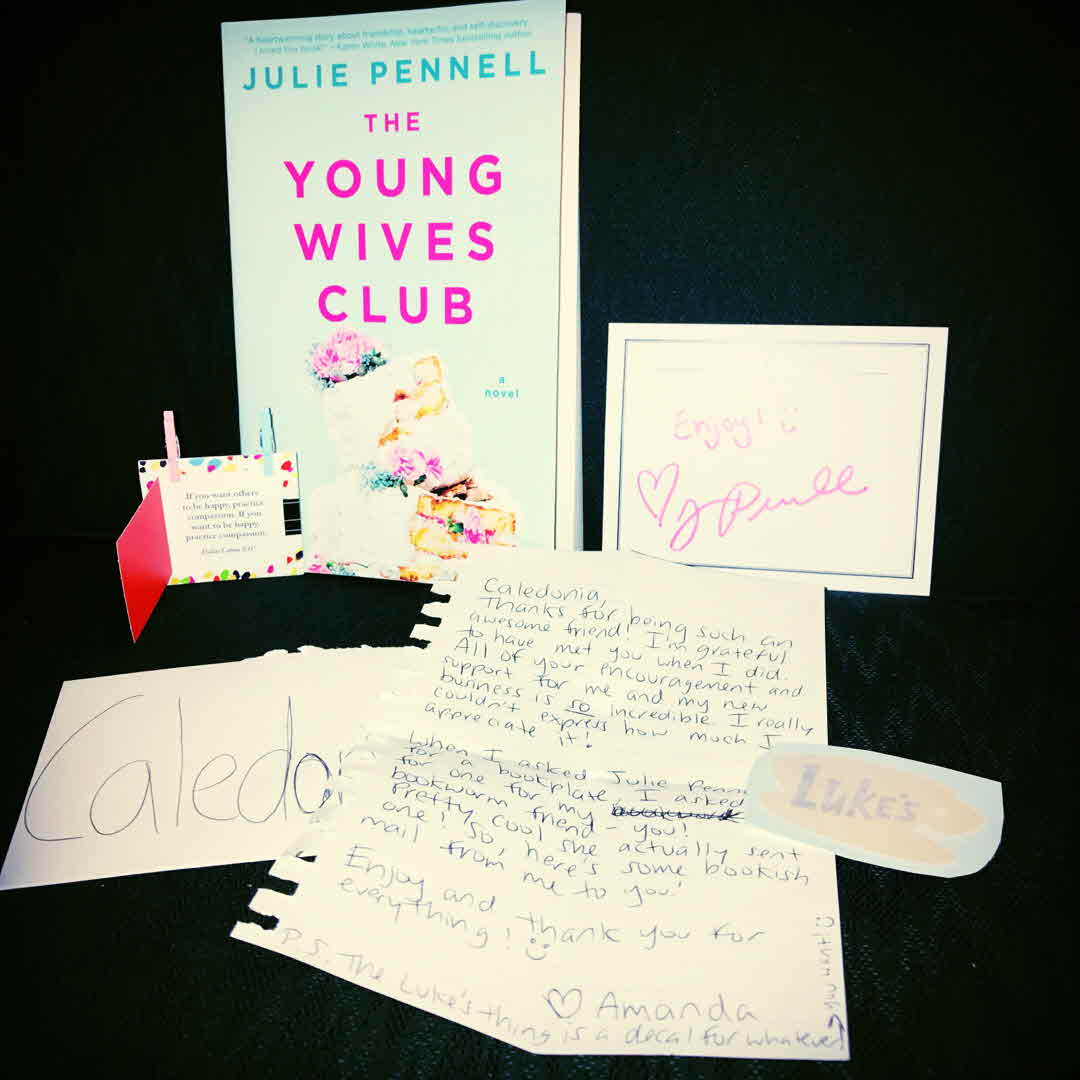 "A heartwarming story about friendship, heartache, and self-discovery.
I loved this book!" —Karen White, New York Times bestselling author
JULIE PENNELL
THE
YOUNG
WIVES
CLUB
a
novel
If you want others
to be happy, practice
compassion. If you
want to be happy,
practice compassion.
Enjoy! :)
♡ J Pennell
Caledon
Caledonia,
Thanks for being such an
awesome friend! I'm grateful
to have met you when I did.
All of your encouragement and
support for me and my new
business is so incredible. I really
couldn't express how much I
appreciate it!
When I asked Julie Penn
for a bookplate, I asked
for one for my
bookworm friend - you!
Pretty cool she actually sent
one! So, here's some bookish
mail from me to you!
Enjoy and thank you for
everything! :)
♡ Amanda
P.S. The Luke's thing is a decal for whatever
→ you want! :)
LUKE'S